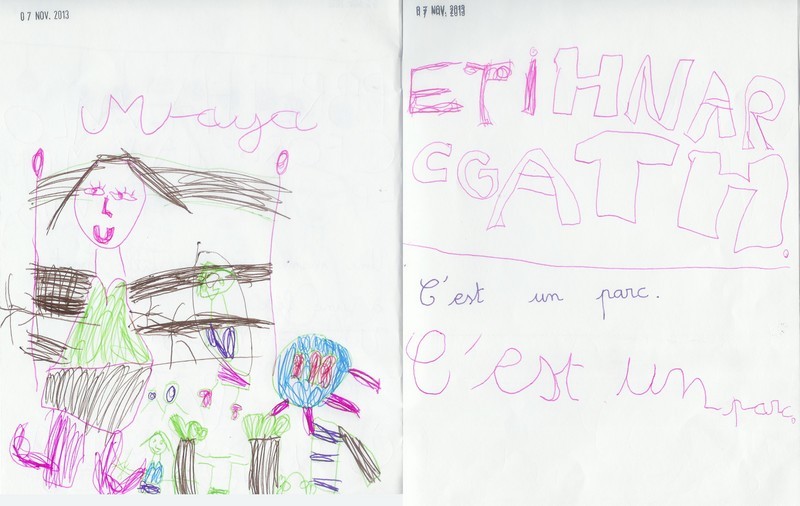 07 NOV. 2013
Maya
07 NOV. 2013
ETiHNAR
CGATH.
C'est un parc.
C'est un parc.